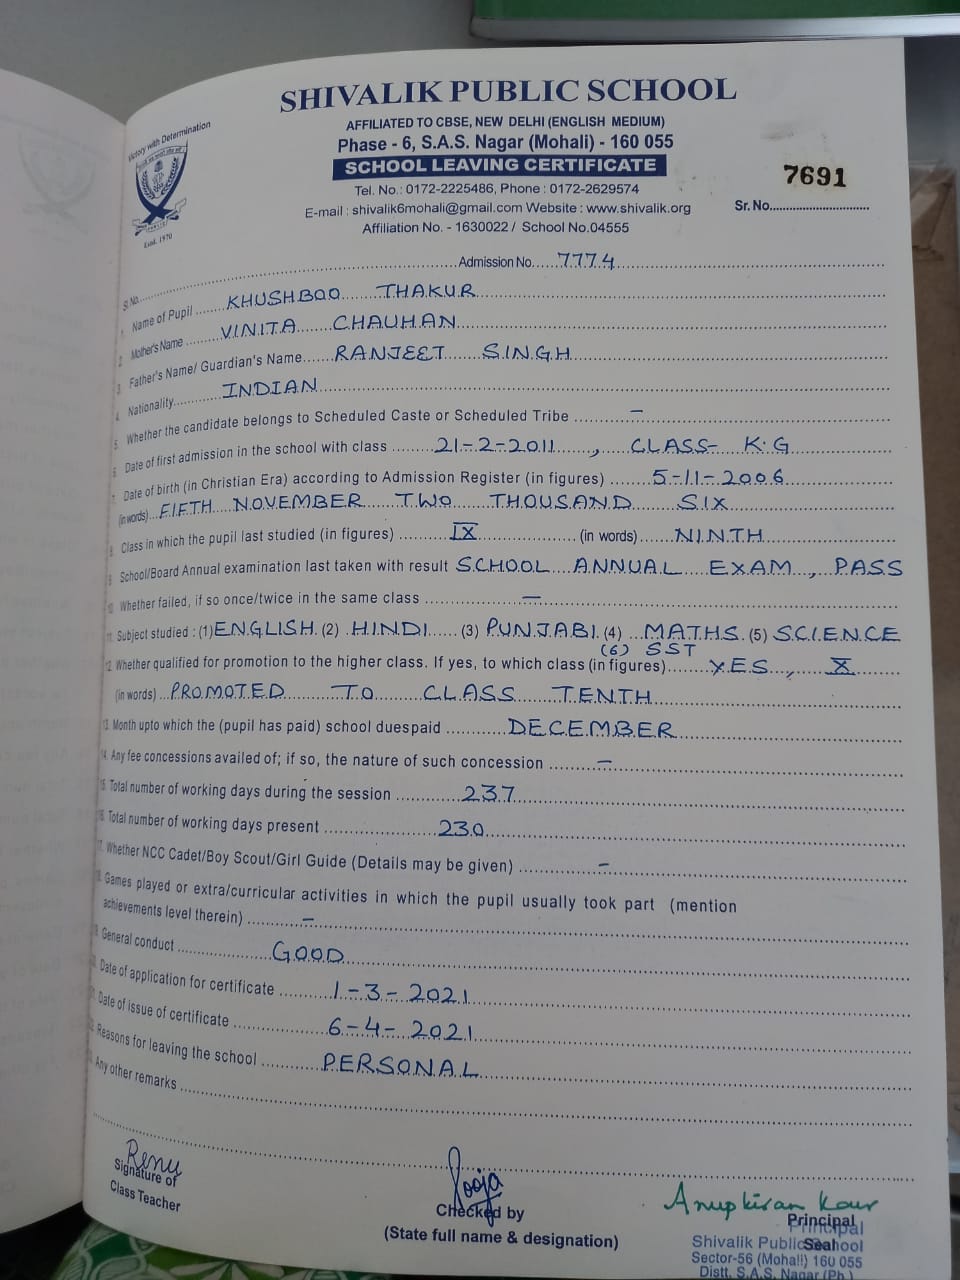 SHIVALIK PUBLIC SCHOOL
Victory with Determination
AFFILIATED TO CBSE, NEW DELHI (ENGLISH MEDIUM)
Phase - 6, S.A.S. Nagar (Mohali) - 160 055
SCHOOL LEAVING CERTIFICATE
7691
Tel. No.: 0172-2225486, Phone : 0172-2629574
E-mail : shivalik6mohali@gmail.com Website : www.shivalik.org
Sr. No.
Affiliation No. - 1630022 / School No.04555
Estd. 1970
Sl. No. Admission No. 7774
1. Name of Pupil KHUSHBOO THAKUR
2. Mother's Name VINITA CHAUHAN
3. Father's Name/ Guardian's Name RANJEET SINGH
4. Nationality INDIAN
5. Whether the candidate belongs to Scheduled Caste or Scheduled Tribe –
6. Date of first admission in the school with class 21-2-2011, CLASS- K.G
7. Date of birth (in Christian Era) according to Admission Register (in figures) 5-11-2006
(in words) FIFTH NOVEMBER TWO THOUSAND SIX
8. Class in which the pupil last studied (in figures) IX (in words) NINTH
9. School/Board Annual examination last taken with result SCHOOL ANNUAL EXAM, PASS
10. Whether failed, if so once/twice in the same class –
11. Subject studied : (1) ENGLISH (2) HINDI (3) PUNJABI (4) MATHS (5) SCIENCE
(6) SST
12. Whether qualified for promotion to the higher class. If yes, to which class (in figures) YES, X
(in words) PROMOTED TO CLASS TENTH
13. Month upto which the (pupil has paid) school duespaid DECEMBER
14. Any fee concessions availed of; if so, the nature of such concession –
15. Total number of working days during the session 237
16. Total number of working days present 230
17. Whether NCC Cadet/Boy Scout/Girl Guide (Details may be given) –
18. Games played or extra/curricular activities in which the pupil usually took part (mention
achievements level therein) –
19. General conduct GOOD
20. Date of application for certificate 1-3-2021
21. Date of issue of certificate 6-4-2021
22. Reasons for leaving the school PERSONAL
Any other remarks
Renu
Signature of
Class Teacher
Pooja
Checked by
(State full name & designation)
Anupkiran Kaur
Principal
Seal
Principal
Shivalik Public School
Sector-56 (Mohali) 160 055
Distt. S.A.S. Nagar (Pb.)